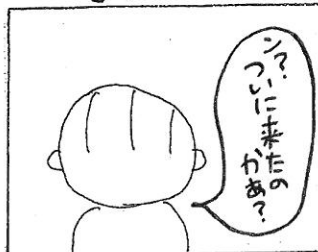 ン?
ついに来たの
かぁ?